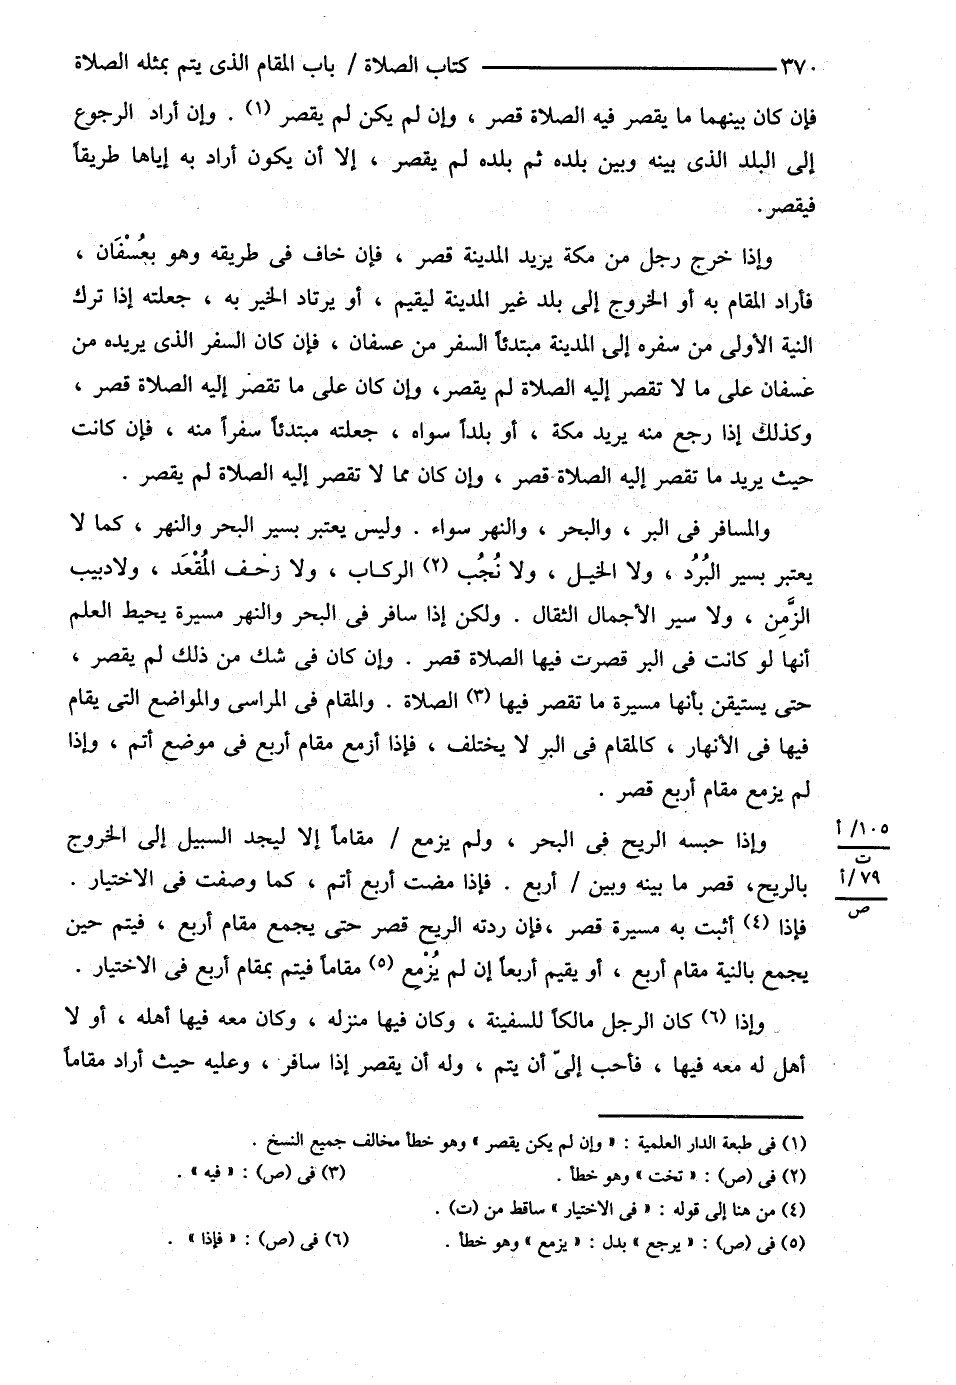 ٣٧٠ ——— كتاب الصلاة / باب المقام الذى يتم بمثله الصلاة
فإن كان بينهما ما يقصر فيه الصلاة قصر ، وإن لم يكن لم يقصر (١) . وإن أراد الرجوع
إلى البلد الذى بينه وبين بلده ثم بلده لم يقصر ، إلا أن يكون أراد به إياها طريقاً
فيقصر.
وإذا خرج رجل من مكة يريد المدينة قصر ، فإن خاف فى طريقه وهو بعُسْفَان ،
فأراد المقام به أو الخروج إلى بلد غير المدينة ليقيم ، أو يرتاد الخير به ، جعلته إذا ترك
النية الأولى من سفره إلى المدينة مبتدئاً السفر من عسفان ، فإن كان السفر الذى يريده من
عسفان على ما لا تقصر إليه الصلاة لم يقصر، وإن كان على ما تقصر إليه الصلاة قصر ،
وكذلك إذا رجع منه يريد مكة ، أو بلداً سواه ، جعلته مبتدئاً سفراً منه ، فإن كانت
حيث يريد ما تقصر إليه الصلاة قصر ، وإن كان مما لا تقصر إليه الصلاة لم يقصر .
والمسافر فى البر ، والبحر ، والنهر سواء . وليس يعتبر بسير البحر والنهر ، كما لا
يعتبر بسير البُرُد ، ولا الخيل ، ولا نُجُب (٢) الركاب ، ولا زحف المُقْعَد ، ولادبيب
الزَّمِن ، ولا سير الأجمال الثقال . ولكن إذا سافر فى البحر والنهر مسيرة يحيط العلم
أنها لو كانت فى البر قصرت فيها الصلاة قصر . وإن كان فى شك من ذلك لم يقصر ،
حتى يستيقن بأنها مسيرة ما تقصر فيها (٣) الصلاة . والمقام فى المراسى والمواضع التى يقام
فيها فى الأنهار ، كالمقام فى البر لا يختلف ، فإذا أزمع مقام أربع فى موضع أتم ، وإذا
لم يزمع مقام أربع قصر .
وإذا حبسه الريح فى البحر ، ولم يزمع / مقاماً إلا ليجد السبيل إلى الخروج
١٠٥/ أ
ت
بالريح، قصر ما بينه وبين / أربع . فإذا مضت أربع أتم ، كما وصفت فى الاختيار .
٧٩/ أ
ص
فإذا (٤) أثبت به مسيرة قصر ،فإن ردته الريح قصر حتى يجمع مقام أربع ، فيتم حين
يجمع بالنية مقام أربع ، أو يقيم أربعاً إن لم يُزْمِع (٥) مقاماً فيتم بمقام أربع فى الاختيار .
وإذا (٦) كان الرجل مالكاً للسفينة ، وكان فيها منزله ، وكان معه فيها أهله ، أو لا
أهل له معه فيها ، فأحب إلىّ أن يتم ، وله أن يقصر إذا سافر ، وعليه حيث أراد مقاماً
(١) فى طبعة الدار العلمية : « وإن لم يكن يقصر » وهو خطأ مخالف جميع النسخ .
(٢) فى (ص) : « تخت » وهو خطأ . (٣) فى (ص) : « فيه » .
(٤) من هنا إلى قوله : « فى الاختيار » ساقط من (ت) .
(٥) فى (ص) : « يرجع » بدل : « يزمع » وهو خطأ . (٦) فى (ص) : « فإذا » .